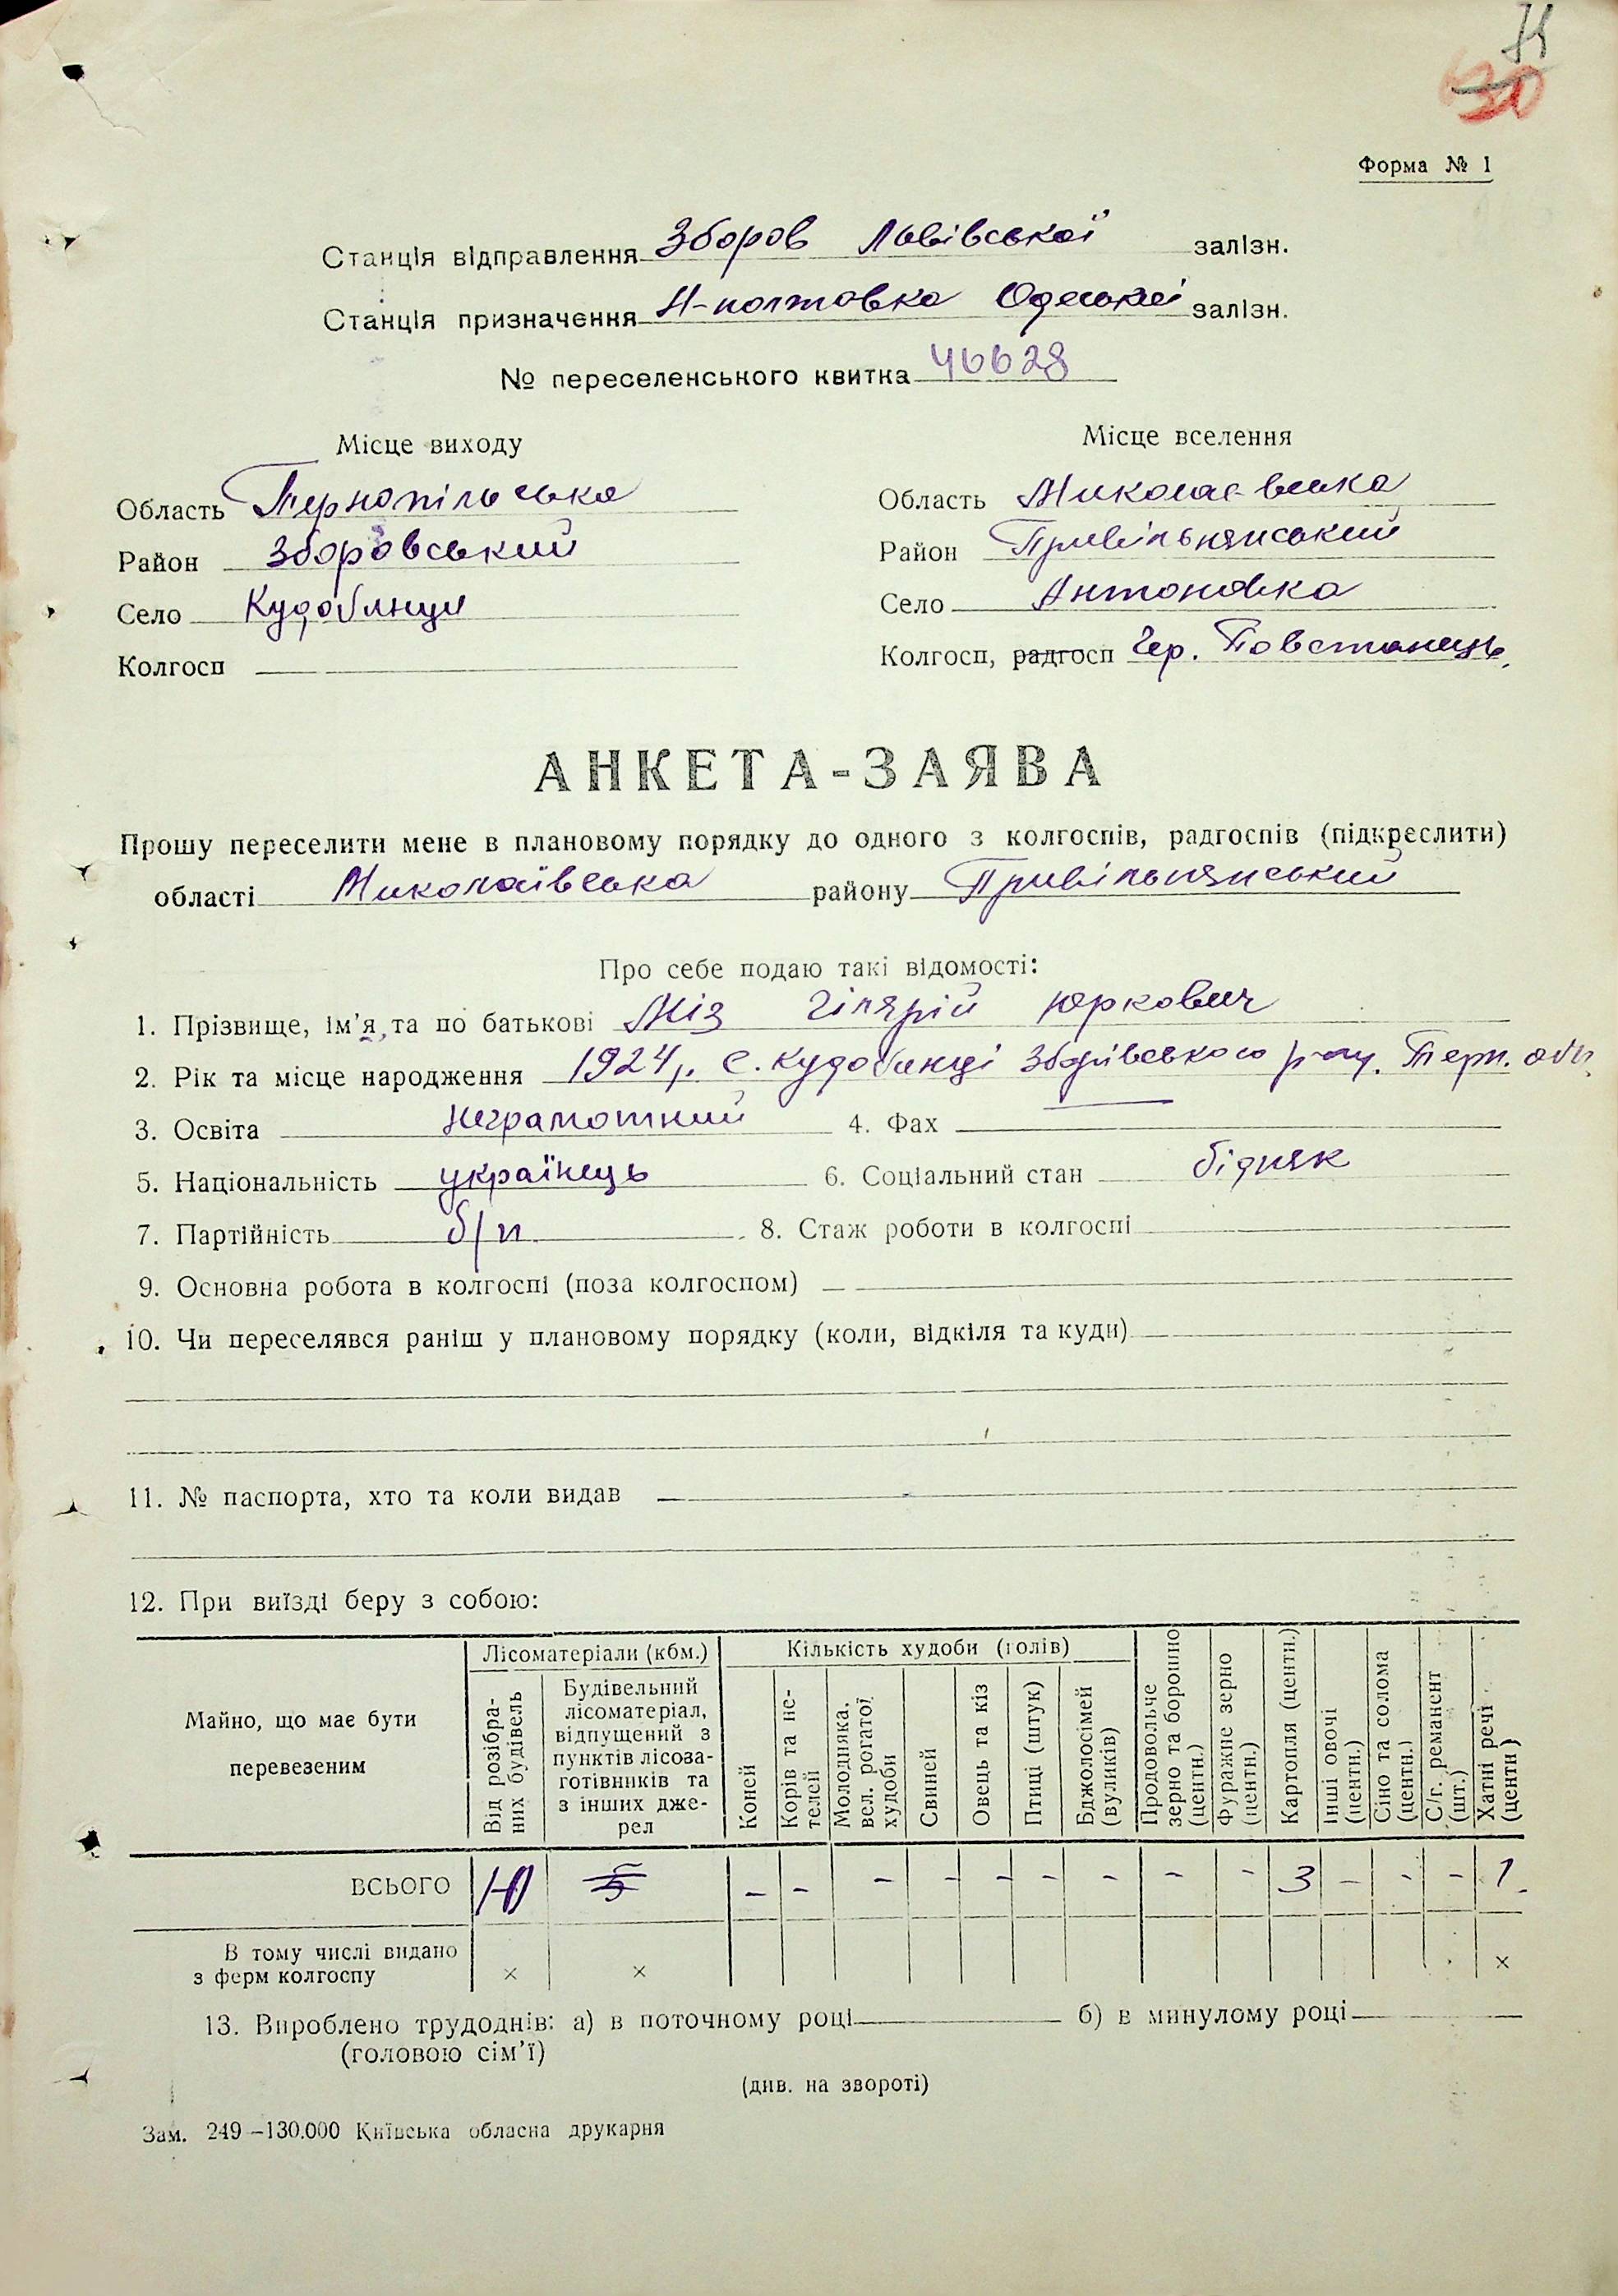 71
30
Форма № 1
Станція відправлення Зборов Львівської залізн.
Станція призначення Н-полтовка Одеської залізн.
№ переселенського квитка 46628
Місце виходу
Місце вселення
Область Тернопільська
Область Миколаєвська
Район Зборовський
Район Привільнянський
Село Кудобинци
Село Антоновка
Колгосп —
Колгосп, радгосп Чер. Повстанець
АНКЕТА-ЗАЯВА
Прошу переселити мене в плановому порядку до одного з колгоспів, радгоспів (підкреслити)
області Миколаївська району Привільнянський
Про себе подаю такі відомості:
1. Прізвище, ім'я, та по батькові Міз Гілярій Юркович
2. Рік та місце народження 1924 р. с. Кудобинці Зборівського р-ну. Терн. обл.
3. Освіта неграмотний 4. Фах —
5. Національність українець 6. Соціальний стан бідняк
7. Партійність б/п. 8. Стаж роботи в колгоспі
9. Основна робота в колгоспі (поза колгоспом) —
10. Чи переселявся раніш у плановому порядку (коли, відкіля та куди)
11. № паспорта, хто та коли видав —
12. При виїзді беру з собою:
Майно, що має бути перевезеним
Лісоматеріали (кбм.)
Кількість худоби (голів)
Від розібраних будівель
Будівельний лісоматеріал, відпущений з пунктів лісозаготівників та з інших джерел
Коней
Корів та нетелей
Молодняка, вел. рогатої худоби
Свиней
Овець та кіз
Птиці (штук)
Бджолосімей (вуликів)
Продовольче зерно та борошно (центн.)
Фуражне зерно (центн.)
Картопля (центн.)
Інші овочі (центн.)
Сіно та солома (центн.)
С/г. реманент (шт.)
Хатні речі (центн)
ВСЬОГО 5 – – – – – – – – – 3 – – – 1.
В тому числі видано з ферм колгоспу × × ×
13. Вироблено трудоднів: а) в поточному році б) в минулому році
(головою сім'ї)
(див. на звороті)
Зам. 249—130.000 Київська обласна друкарня